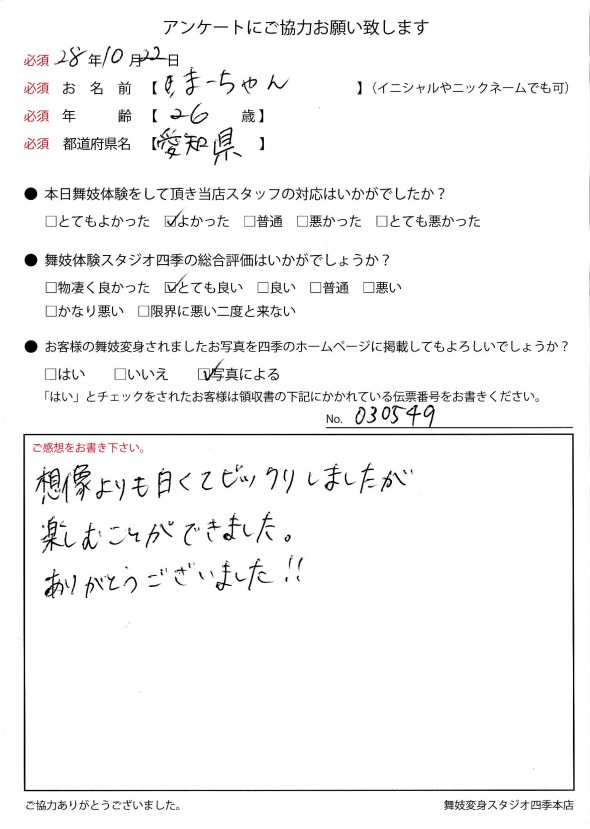 アンケートにご協力お願い致します
必須 28年10月22日
必須 お名前 【 まーちゃん 】(イニシャルやニックネームでも可)
必須 年齢 【 26 歳】
必須 都道府県名 【愛知県 】
● 本日舞妓体験をして頂き当店スタッフの対応はいかがでしたか?
□とてもよかった ☑よかった □普通 □悪かった □とても悪かった
● 舞妓体験スタジオ四季の総合評価はいかがでしょうか?
□物凄く良かった ☑とても良い □良い □普通 □悪い
□かなり悪い □限界に悪い二度と来ない
● お客様の舞妓変身されましたお写真を四季のホームページに掲載してもよろしいでしょうか?
□はい □いいえ ☑写真による
「はい」とチェックをされたお客様は領収書の下記にかかれている伝票番号をお書きください。
No. 030549
ご感想をお書き下さい。
想像よりも白くてビックリしましたが
楽しむことができました。
ありがとうございました!!
ご協力ありがとうございました。
舞妓変身スタジオ四季本店